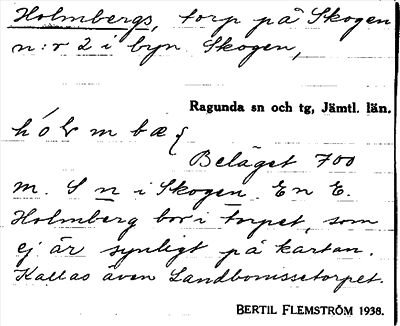 Holmbergs, torp på Skogen
n:r 2 i byn Skogen,
Ragunda sn och tg, Jämtl. län.
Beläget 700
m. S n i Skogen. En E.
Holmberg bor i torpet, som
ej är synligt på kartan.
Kallas även Landbomssetorpet.
BERTIL FLEMSTRÖM 1938.